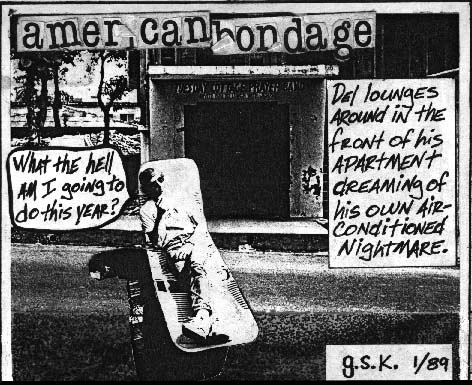 american bondage
What the hell
am I going to
do this year?
Del lounges
around in the
front of his
apartment
dreaming of
his own air-
conditioned
nightmare.
g.s.k. 1/89